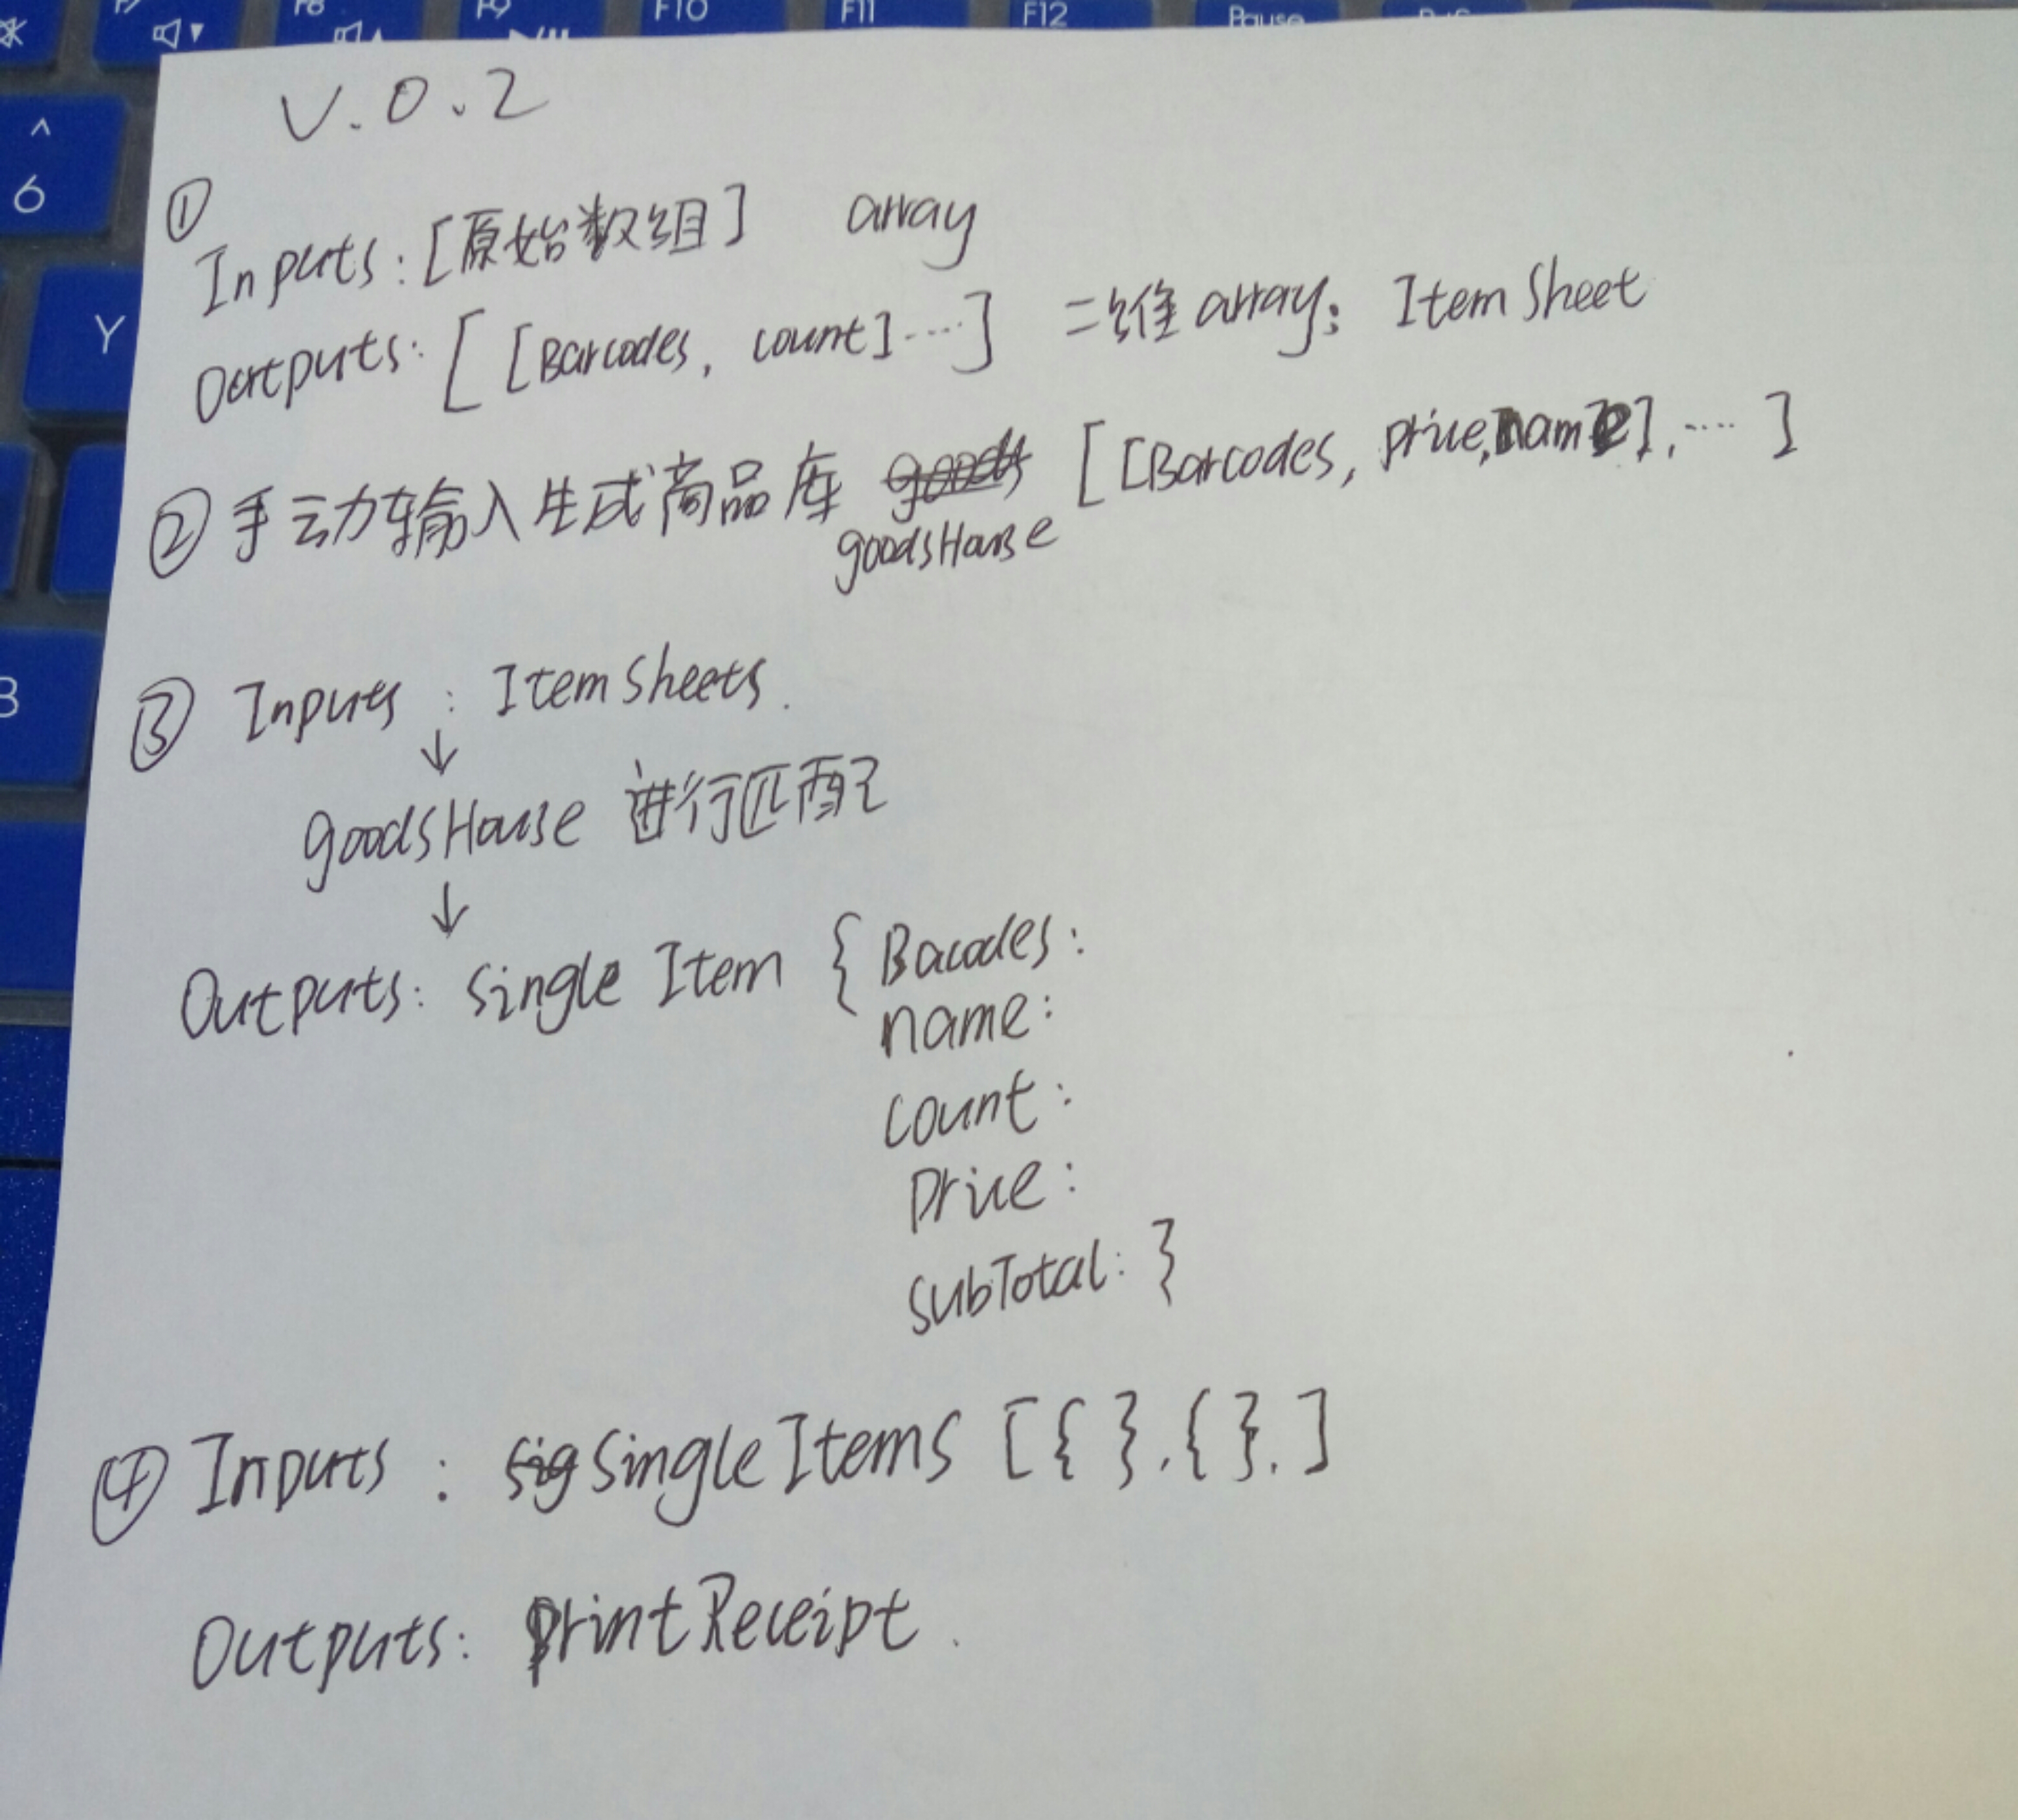 F7 F8 F9 F10 F11 F12 Pause
^
6
Y
B
V.0.2
①
Inputs: [原始数组] array
Outputs: [ [Barcodes, count]....] 二维array: Item Sheet
② 手动输入生成商品库 goods [[Barcodes, price, name],.... ]
goodsHouse
③ Inputs : Item Sheets.
↓
goodsHouse 进行匹配
↓
Outputs: single Item { Bacodes:
name:
count:
price:
subTotal: }
④ Inputs : sig singleItems [{ },{ }.]
Outputs: printReceipt.